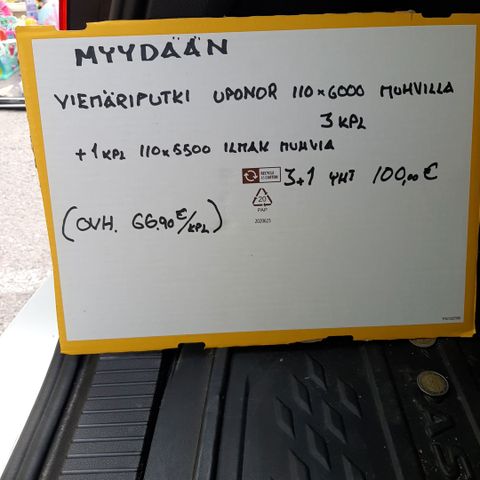 MYYDÄÄN
VIEMÄRIPUTKI UPONOR 110x6000 MUHVILLA
3 KPL
+ 1 KPL 110x5500 ILMAN MUHVIA
3+1 YHT 100,00 €
(OVH. 66.90 €/KPL)
20
PAP